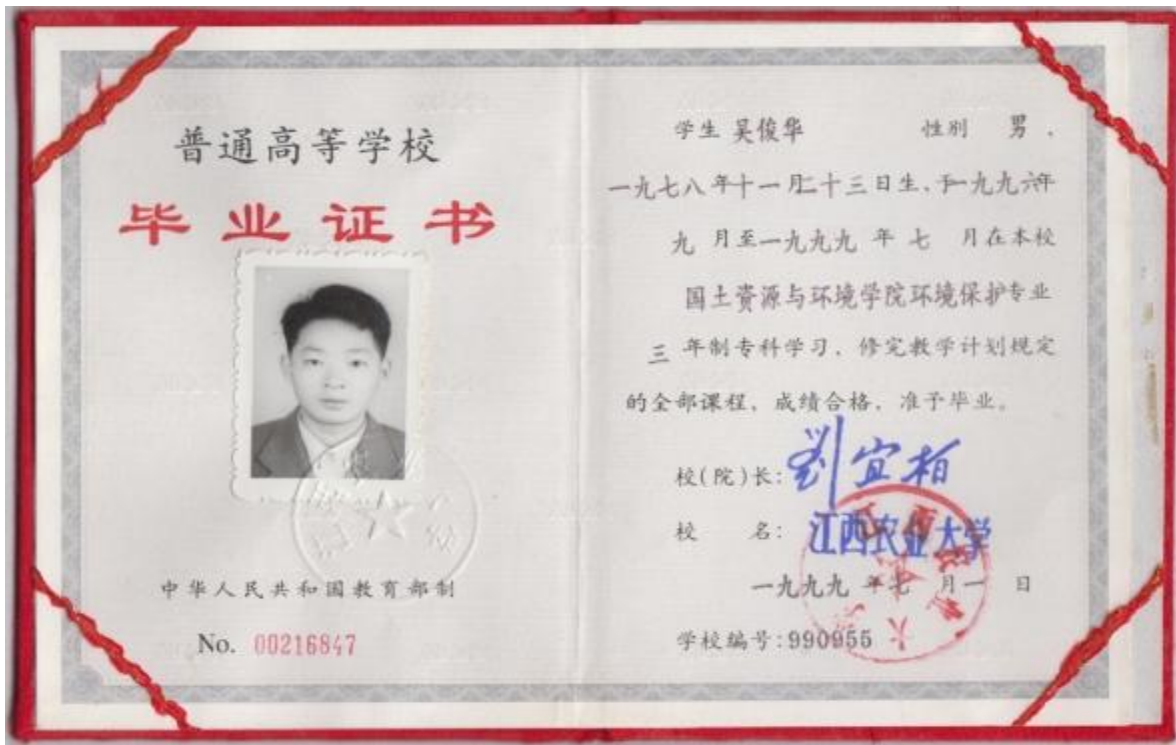 普通高等学校
毕业证书
中华人民共和国教育部制
No. 00216847
学生 吴俊华 性别 男 ,
一九七八年十一月二十三日生、于一九九六年
九 月至一九九九 年 七 月在本校
国土资源与环境学院环境保护专业
三 年制专科学习, 修完教学计划规定
的全部课程, 成绩合格, 准予毕业。
校(院)长: 劉宜柏
校 名: 江西农业大学
一九九九 年七 月一 日
学校编号:990955